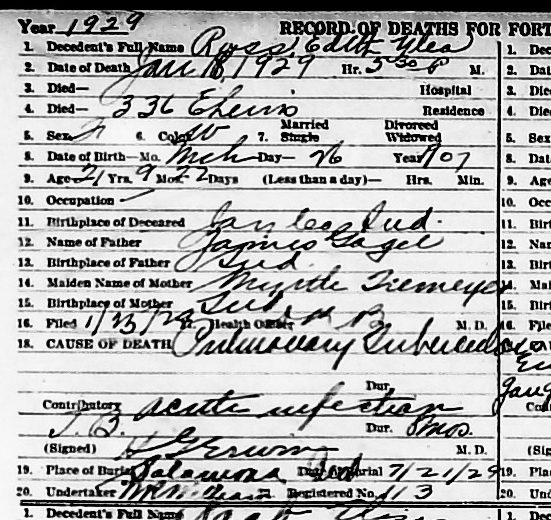 Year 1929 RECORD OF DEATHS FOR FORT
1. Decedent's Full Name Ross, Edith Ilea
2. Date of Death Jan 18, 1929 Hr. 5 30 P M.
3. Died— Hospital
4. Died— 336 Residence
5. Sex F 6. Color W 7. Married Single Divorced Widowed
8. Date of Birth—Mo. Mch Day— 26 Year 1907
9. Age 21 Yrs. 9 Mos. 22 Days (Less than a day)— Hrs. Min.
10. Occupation —
11. Birthplace of Deceased Ind.
12. Name of Father James
13. Birthplace of Father Ind.
14. Maiden Name of Mother Myrtle Tiemeyer
15. Birthplace of Mother Ind.
16. Filed 1/23/29 17. Health Officer M. D.
18. CAUSE OF DEATH Pulmonary Tuberculosis
Dur.
Contributory acute infection
T. B. Dur. 8 mos.
(Signed) H G Erwin M. D.
19. Place of Burial Salamonia Ind Date of Burial 1/21/29
20. Undertaker Registered No. 113
1. Decedent's Full Name
1. Dece
2. Dat
3. Die
4. Die
5. Sex
8. Dat
9. Age
10. Occ
11. Birt
12. Nan
13. Birt
14. Ma
15. Birt
16. File
18. CAU
19. Plac
20. Und
1. Dec